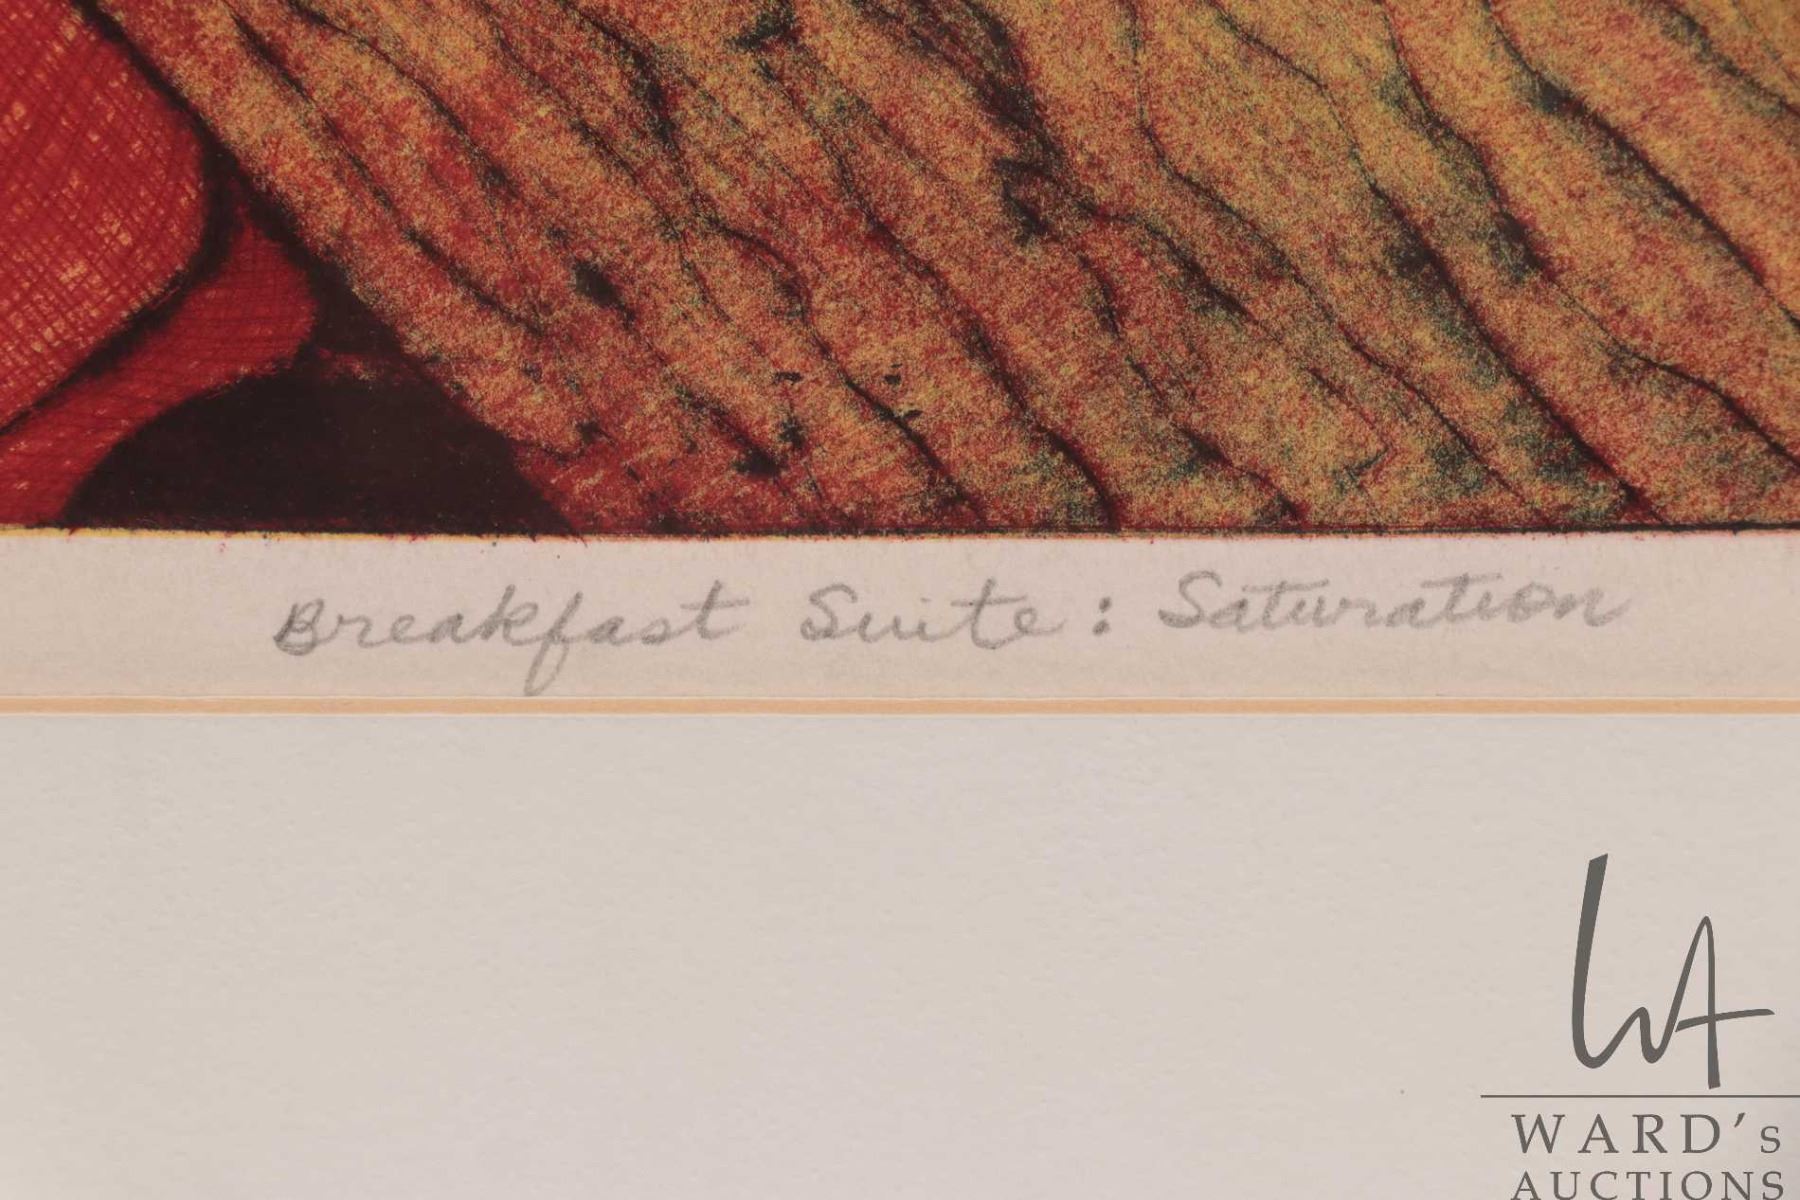 Breakfast Suite: Saturation
WA
WARD's
AUCTIONS